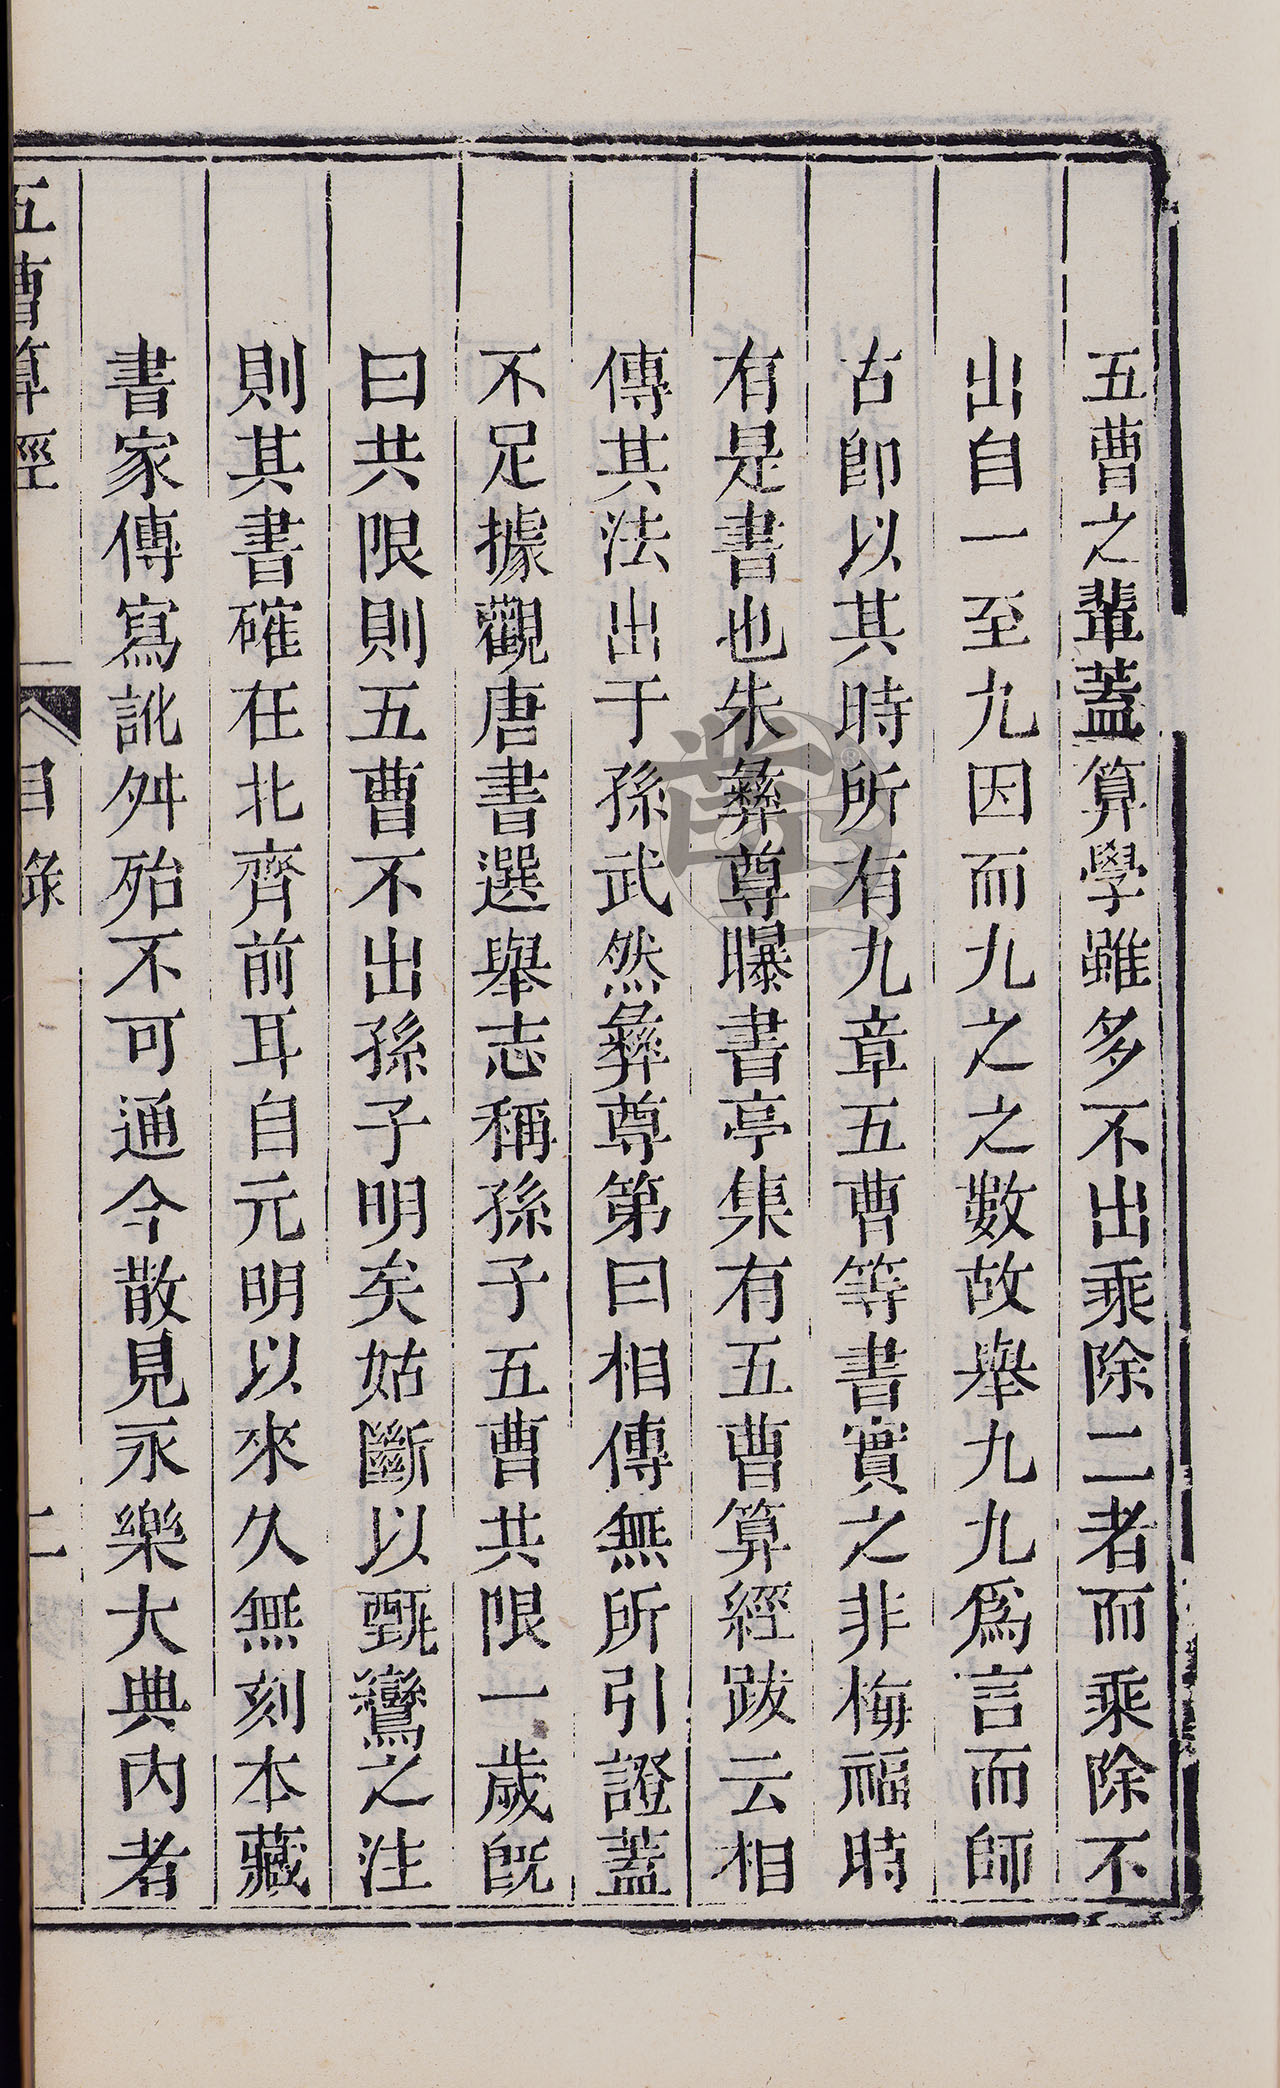 五曹之輩蓋算學雖多不出乘除二者而乘除不
出自一至九因而九之之數故舉九九爲言而師
古卽以其時所有九章五曹等書實之非梅福時
有是書也朱彝尊曝書亭集有五曹算經跋云相
傳其法出于孫武然彝尊第曰相傳無所引證蓋
不足據觀唐書選舉志稱孫子五曹共限一歲旣
曰共限則五曹不出孫子明矣姑斷以甄鸞之注
則其書確在北齊前耳自元明以來久無刻本藏
書家傳寫訛舛殆不可通今散見永樂大典內者
五曹算經 目錄 二